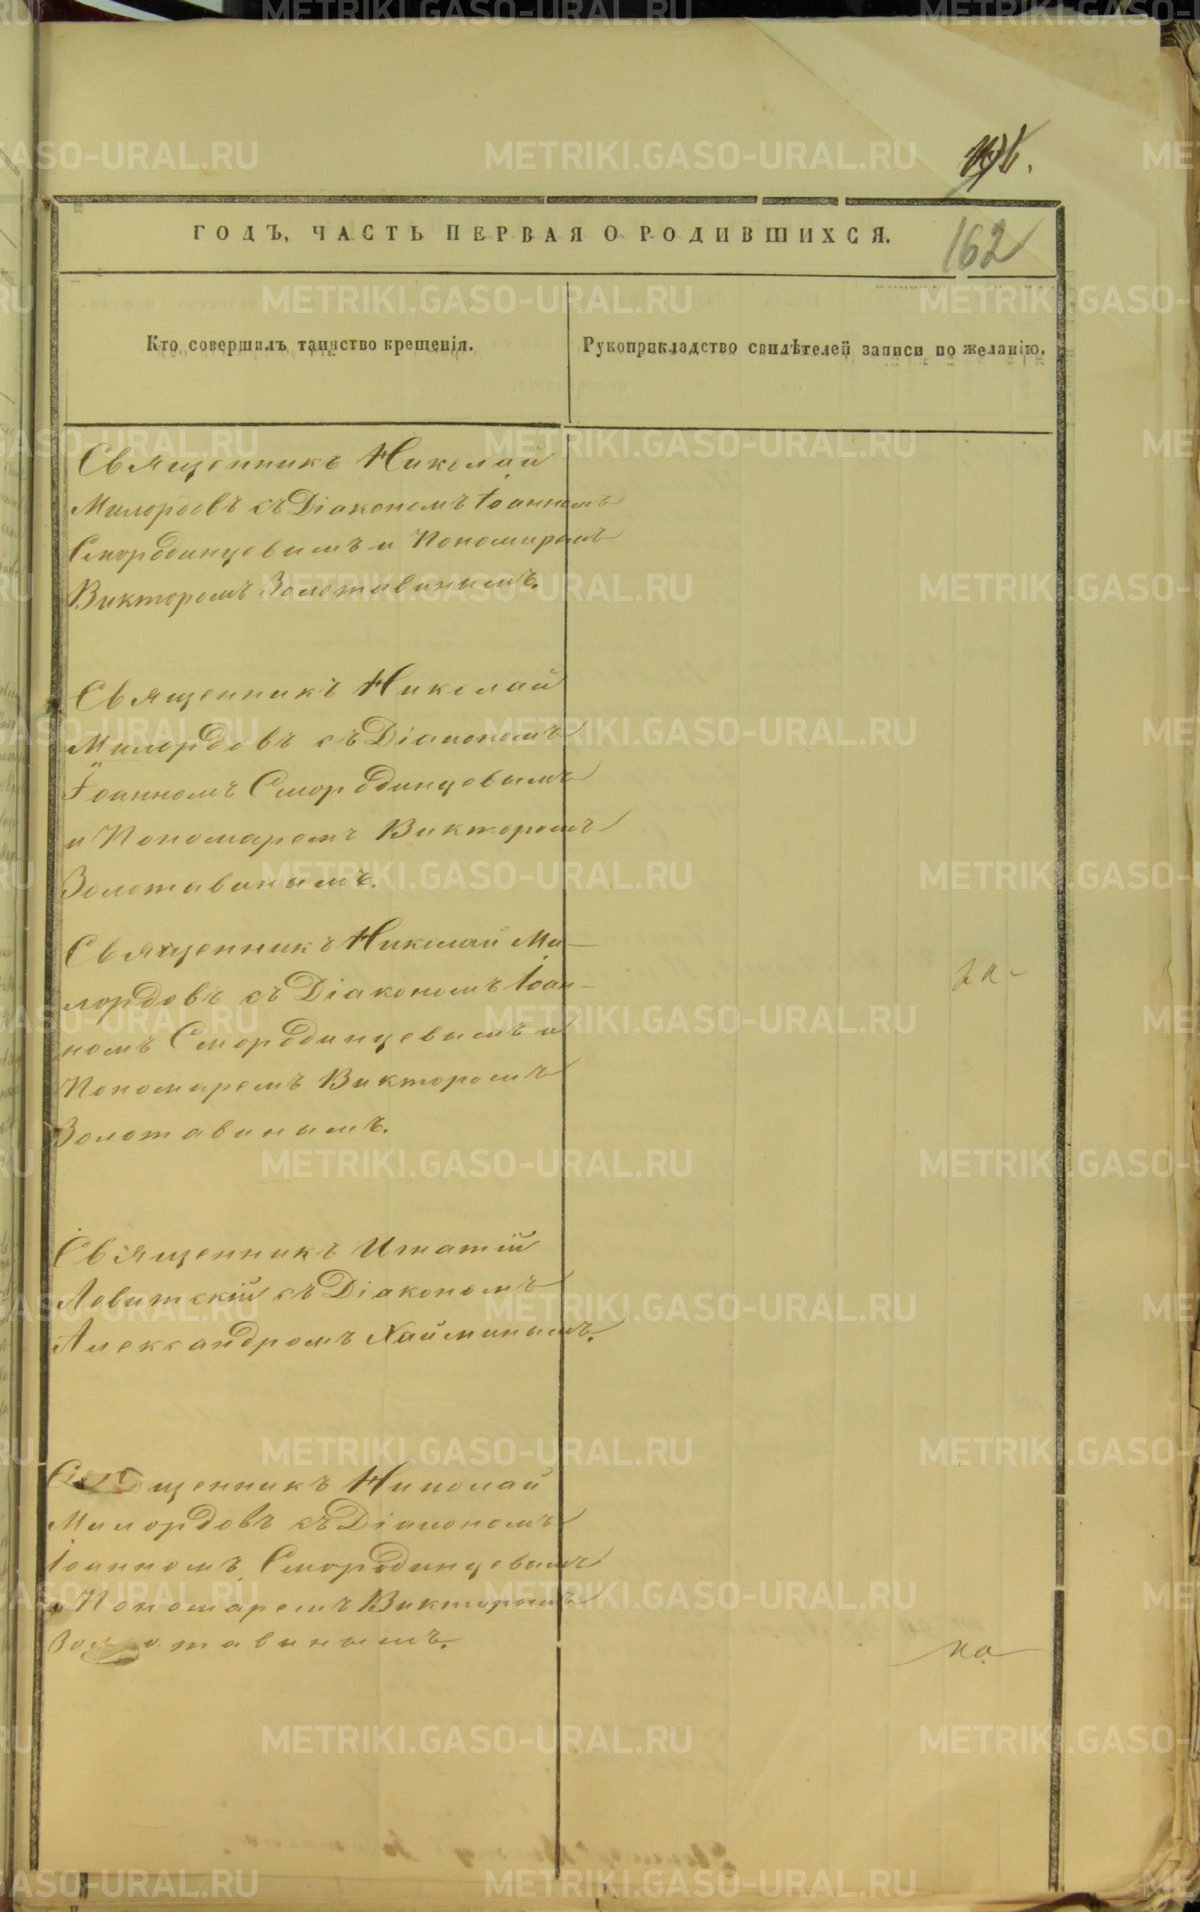 162
ГОДЪ, ЧАСТЬ ПЕРВАЯ О РОДИВШИХСЯ.
Кто совершилъ таинство крещенія.
Рукоприкладство свидѣтелей записи по желанію.
Священникъ Николай
Милордовъ съ Діакономъ Іоанномъ
Смородинцевымъ и Пономаремъ
Викторомъ Золотавинымъ.
Священникъ Николай
Милордовъ съ Діакономъ
Іоанномъ Смородинцевымъ
и Пономаремъ Викторомъ
Золотавинымъ.
Священникъ Николай Ми-
лордовъ съ Діакономъ Іоан-
номъ Смородинцевымъ и
Пономаремъ Викторомъ
Золотавинымъ.
Священникъ Игнатій
Левитскій съ Діакономъ
Александромъ Наймтинымъ.
Священникъ Николай
Милордовъ съ Діакономъ
Іоанномъ Смородинцевымъ
и Пономаремъ Викторомъ
Золотавинымъ.
на
METRIKI.GASO-URAL.RU